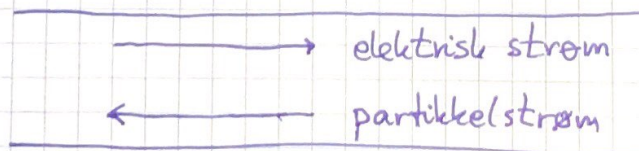 elektrisk strøm
partikkelstrøm